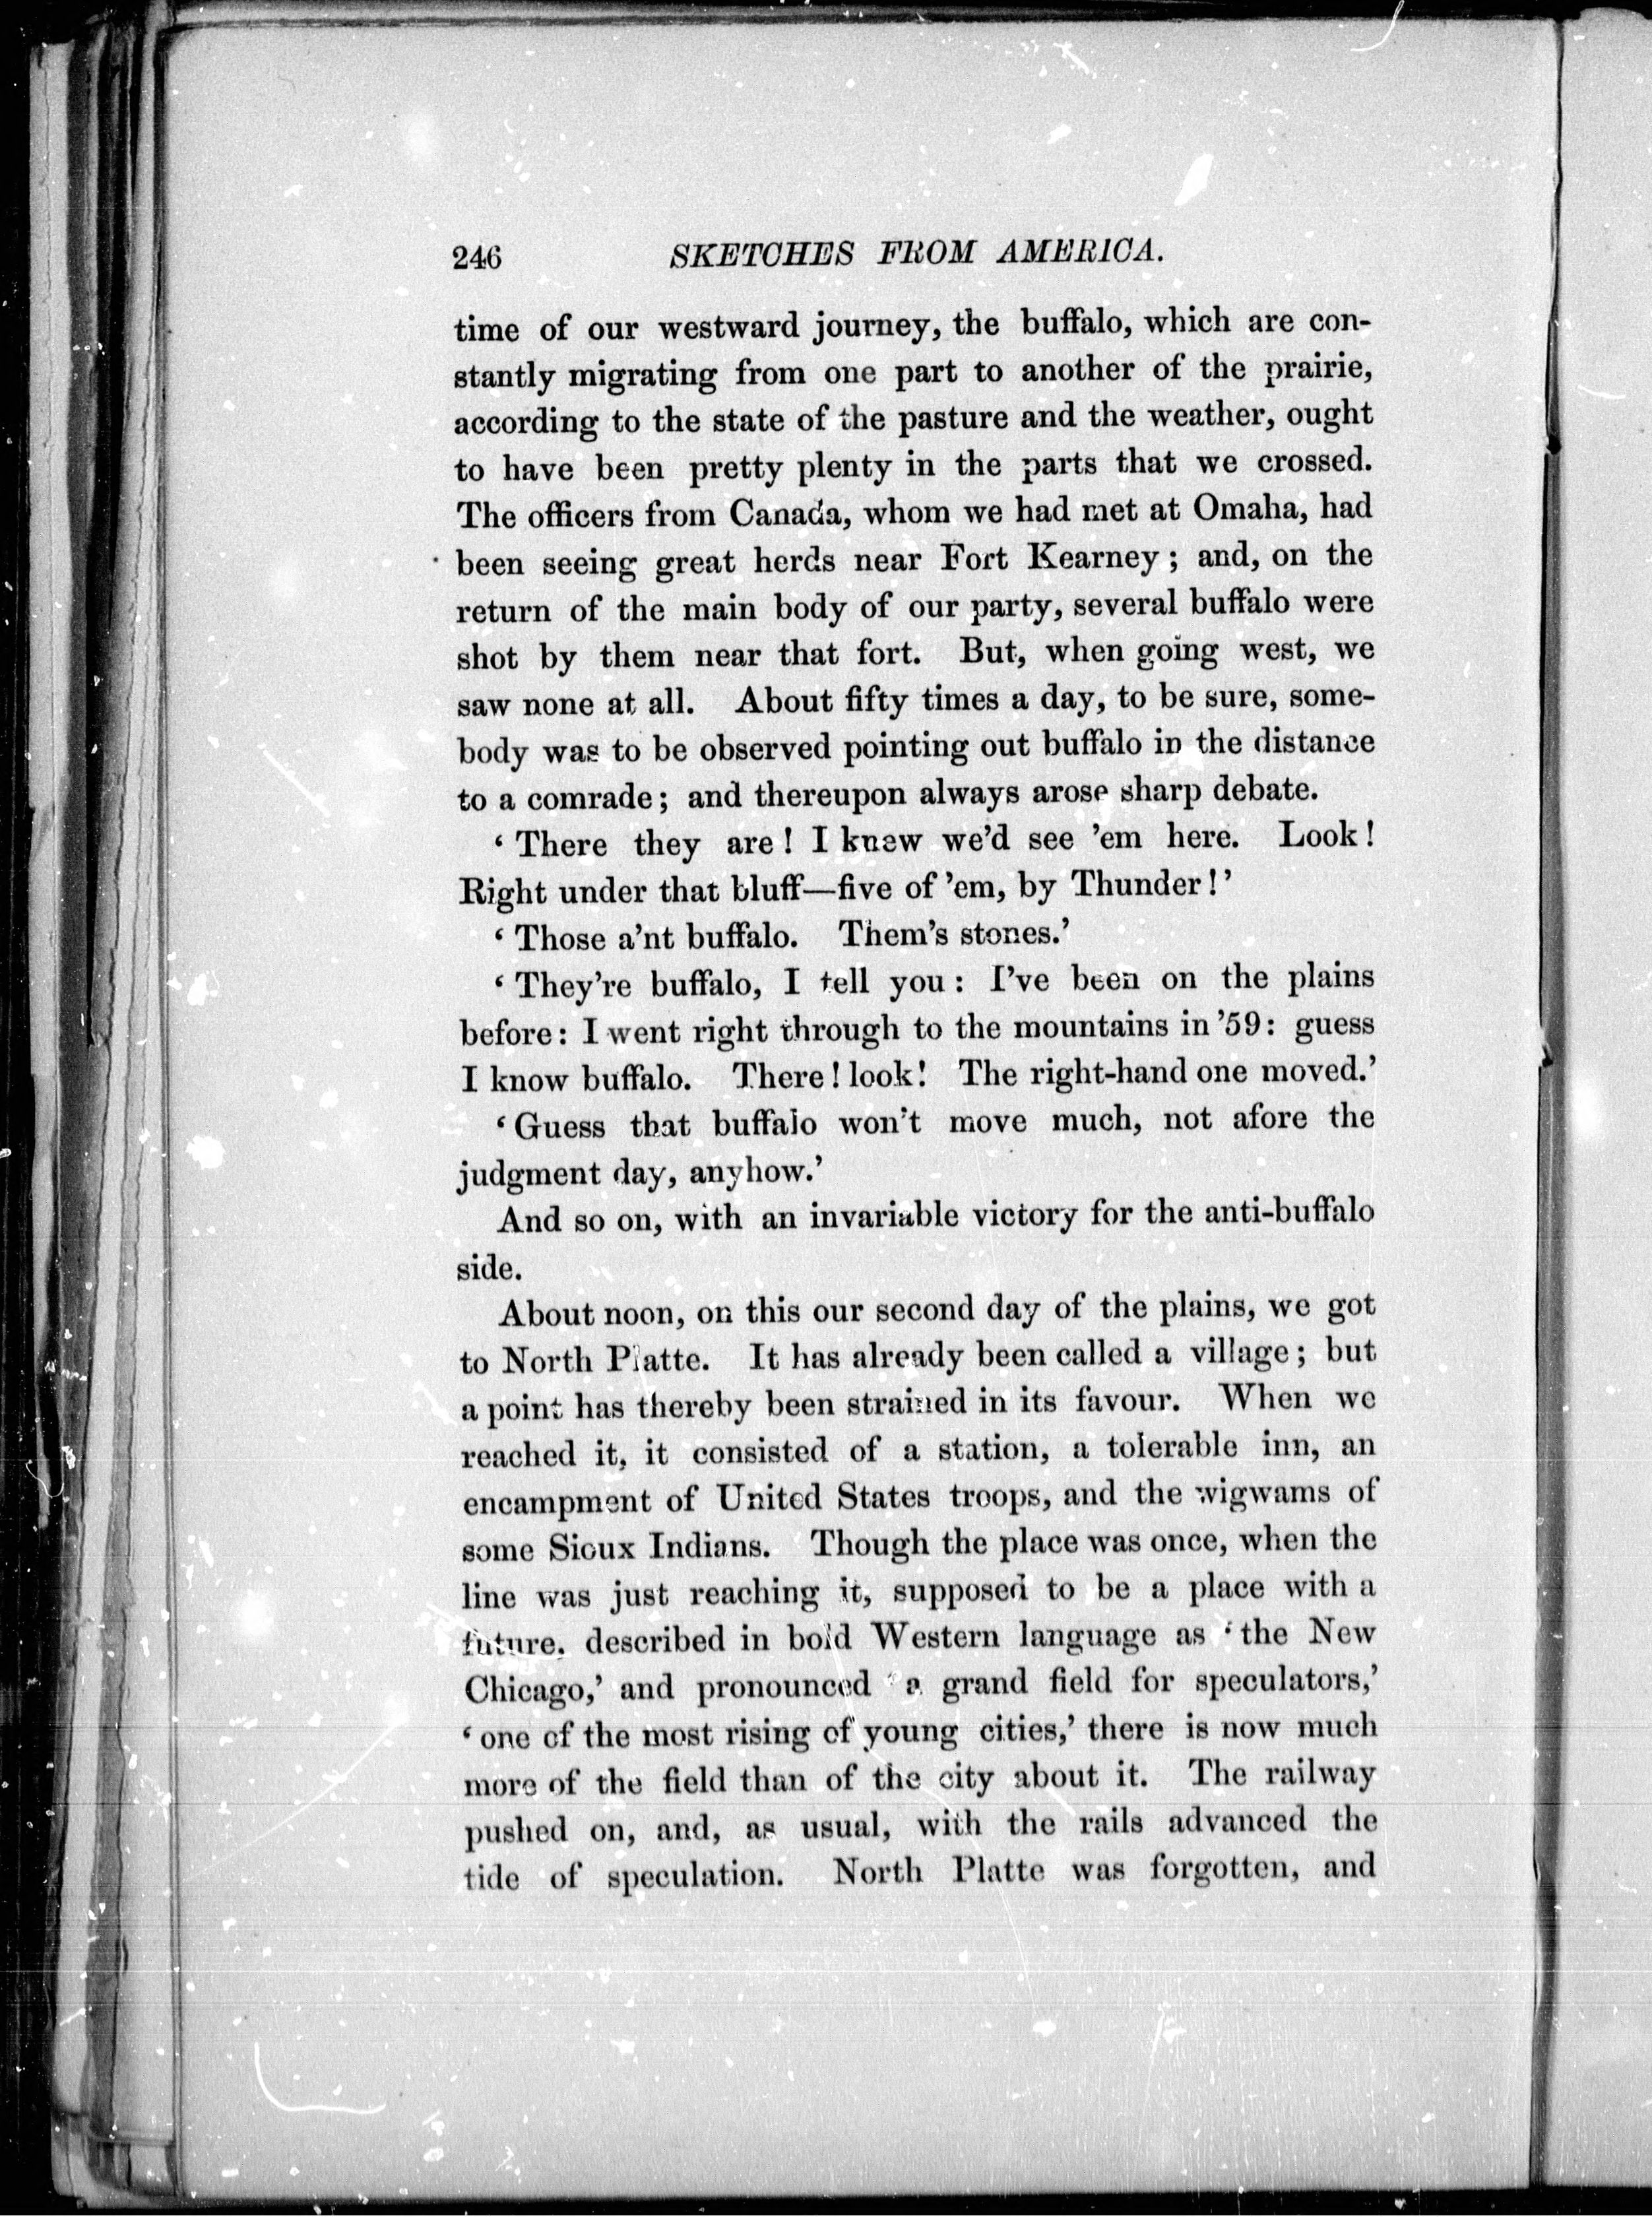 246 SKETCHES FROM AMERICA.
time of our westward journey, the buffalo, which are con-
stantly migrating from one part to another of the prairie,
according to the state of the pasture and the weather, ought
to have been pretty plenty in the parts that we crossed.
The officers from Canada, whom we had met at Omaha, had
been seeing great herds near Fort Kearney; and, on the
return of the main body of our party, several buffalo were
shot by them near that fort. But, when going west, we
saw none at all. About fifty times a day, to be sure, some-
body was to be observed pointing out buffalo in the distance
to a comrade; and thereupon always arose sharp debate.
‘There they are! I knew we’d see ’em here. Look!
Right under that bluff—five of ’em, by Thunder!’
‘Those a’nt buffalo. Them’s stones.’
‘They’re buffalo, I tell you: I’ve been on the plains
before: I went right through to the mountains in ’59: guess
I know buffalo. There! look! The right-hand one moved.’
‘Guess that buffalo won’t move much, not afore the
judgment day, anyhow.’
And so on, with an invariable victory for the anti-buffalo
side.
About noon, on this our second day of the plains, we got
to North Platte. It has already been called a village; but
a point has thereby been strained in its favour. When we
reached it, it consisted of a station, a tolerable inn, an
encampment of United States troops, and the wigwams of
some Sioux Indians. Though the place was once, when the
line was just reaching it, supposed to be a place with a
future, described in bold Western language as ‘the New
Chicago,’ and pronounced ‘a grand field for speculators,’
‘one of the most rising of young cities,’ there is now much
more of the field than of the city about it. The railway
pushed on, and, as usual, with the rails advanced the
tide of speculation. North Platte was forgotten, and